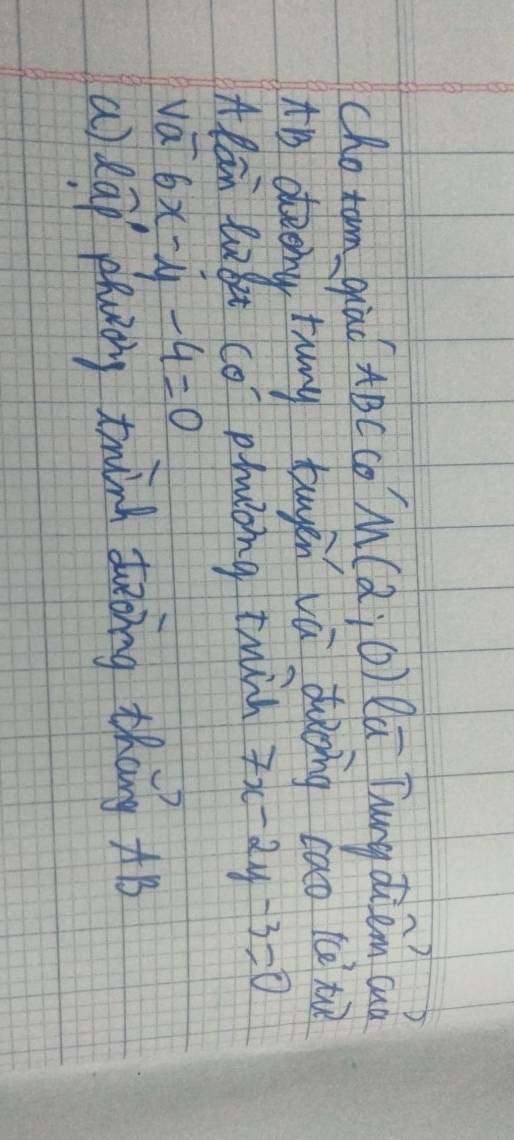 Cho tam giác ABC có M(2;0) là Trung điểm của
AB đường trung tuyến và đường cao kẻ từ
A lần lượt có phương trình 7x-2y-3=0
và 6x-y-4=0
a) lập phương trình đường thẳng AB